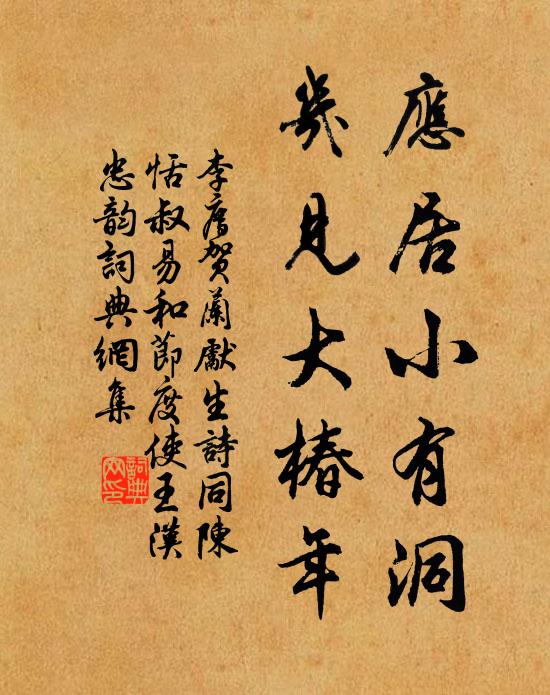 應居小有洞
幾見大椿年
李廌賀蘭獻生詩同陳
恬叔易和節度使王漢
忠韵詞典網集
詞典